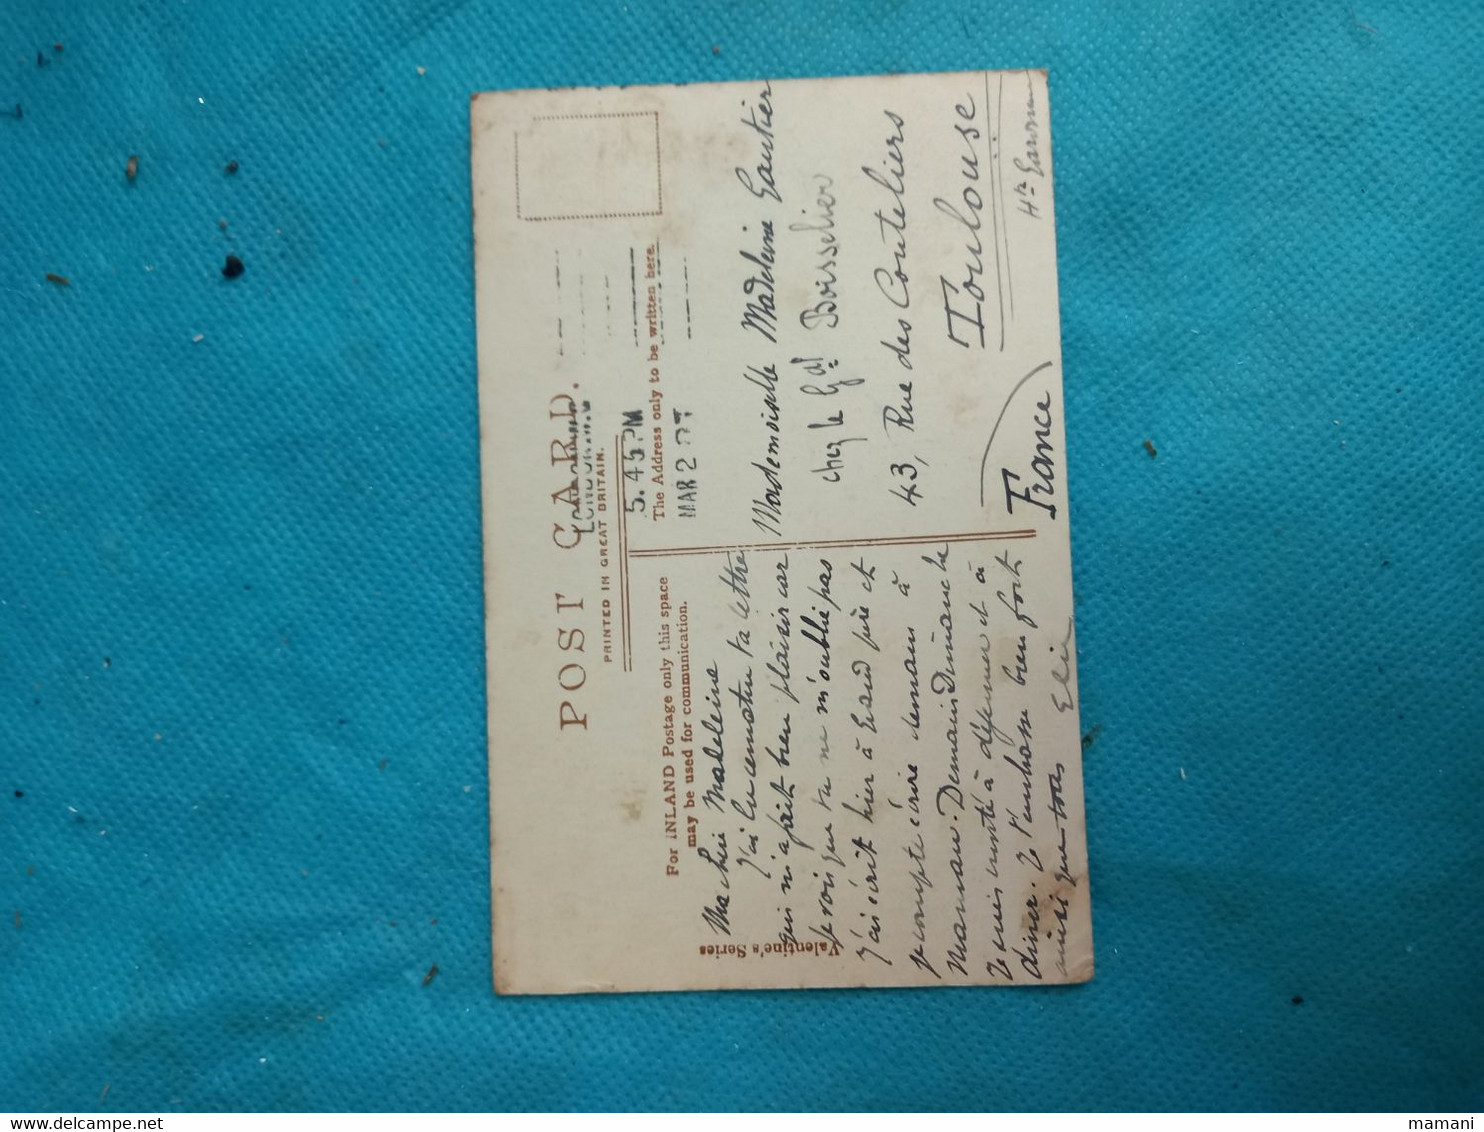 POST CARD.
PRINTED IN GREAT BRITAIN.
LONDON. W.C
5.45 PM
MAR 2 07
For INLAND Postage only this space
may be used for communication.
The Address only to be written here.
Valentine's Series
Ma chère Madeleine
J'ai lu ce matin ta lettre
qui m'a fait bien plaisir car
je vois que tu ne m'oublie pas
J'ai écrit hier à Grand père et
je compte écrire demain à
Maman. Demain Dimanche
Je suis invité à déjeuner et à
diner. Je t'embrasse bien fort
ainsi que tous
Mademoiselle Madeleine Gautier
chez le Gal Boisselier
43, Rue des Couteliers
Toulouse
Hte Garonne
France
mamani